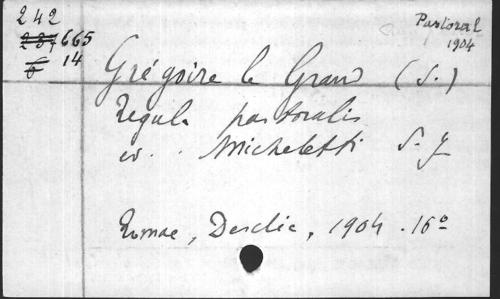 242
237 665
6 14
Pastoral
1904
Grégoire le Grand (S.)
Regula pastoralis
ed. Micheletti S. J.
Romae, Desclée, 1904. 16°